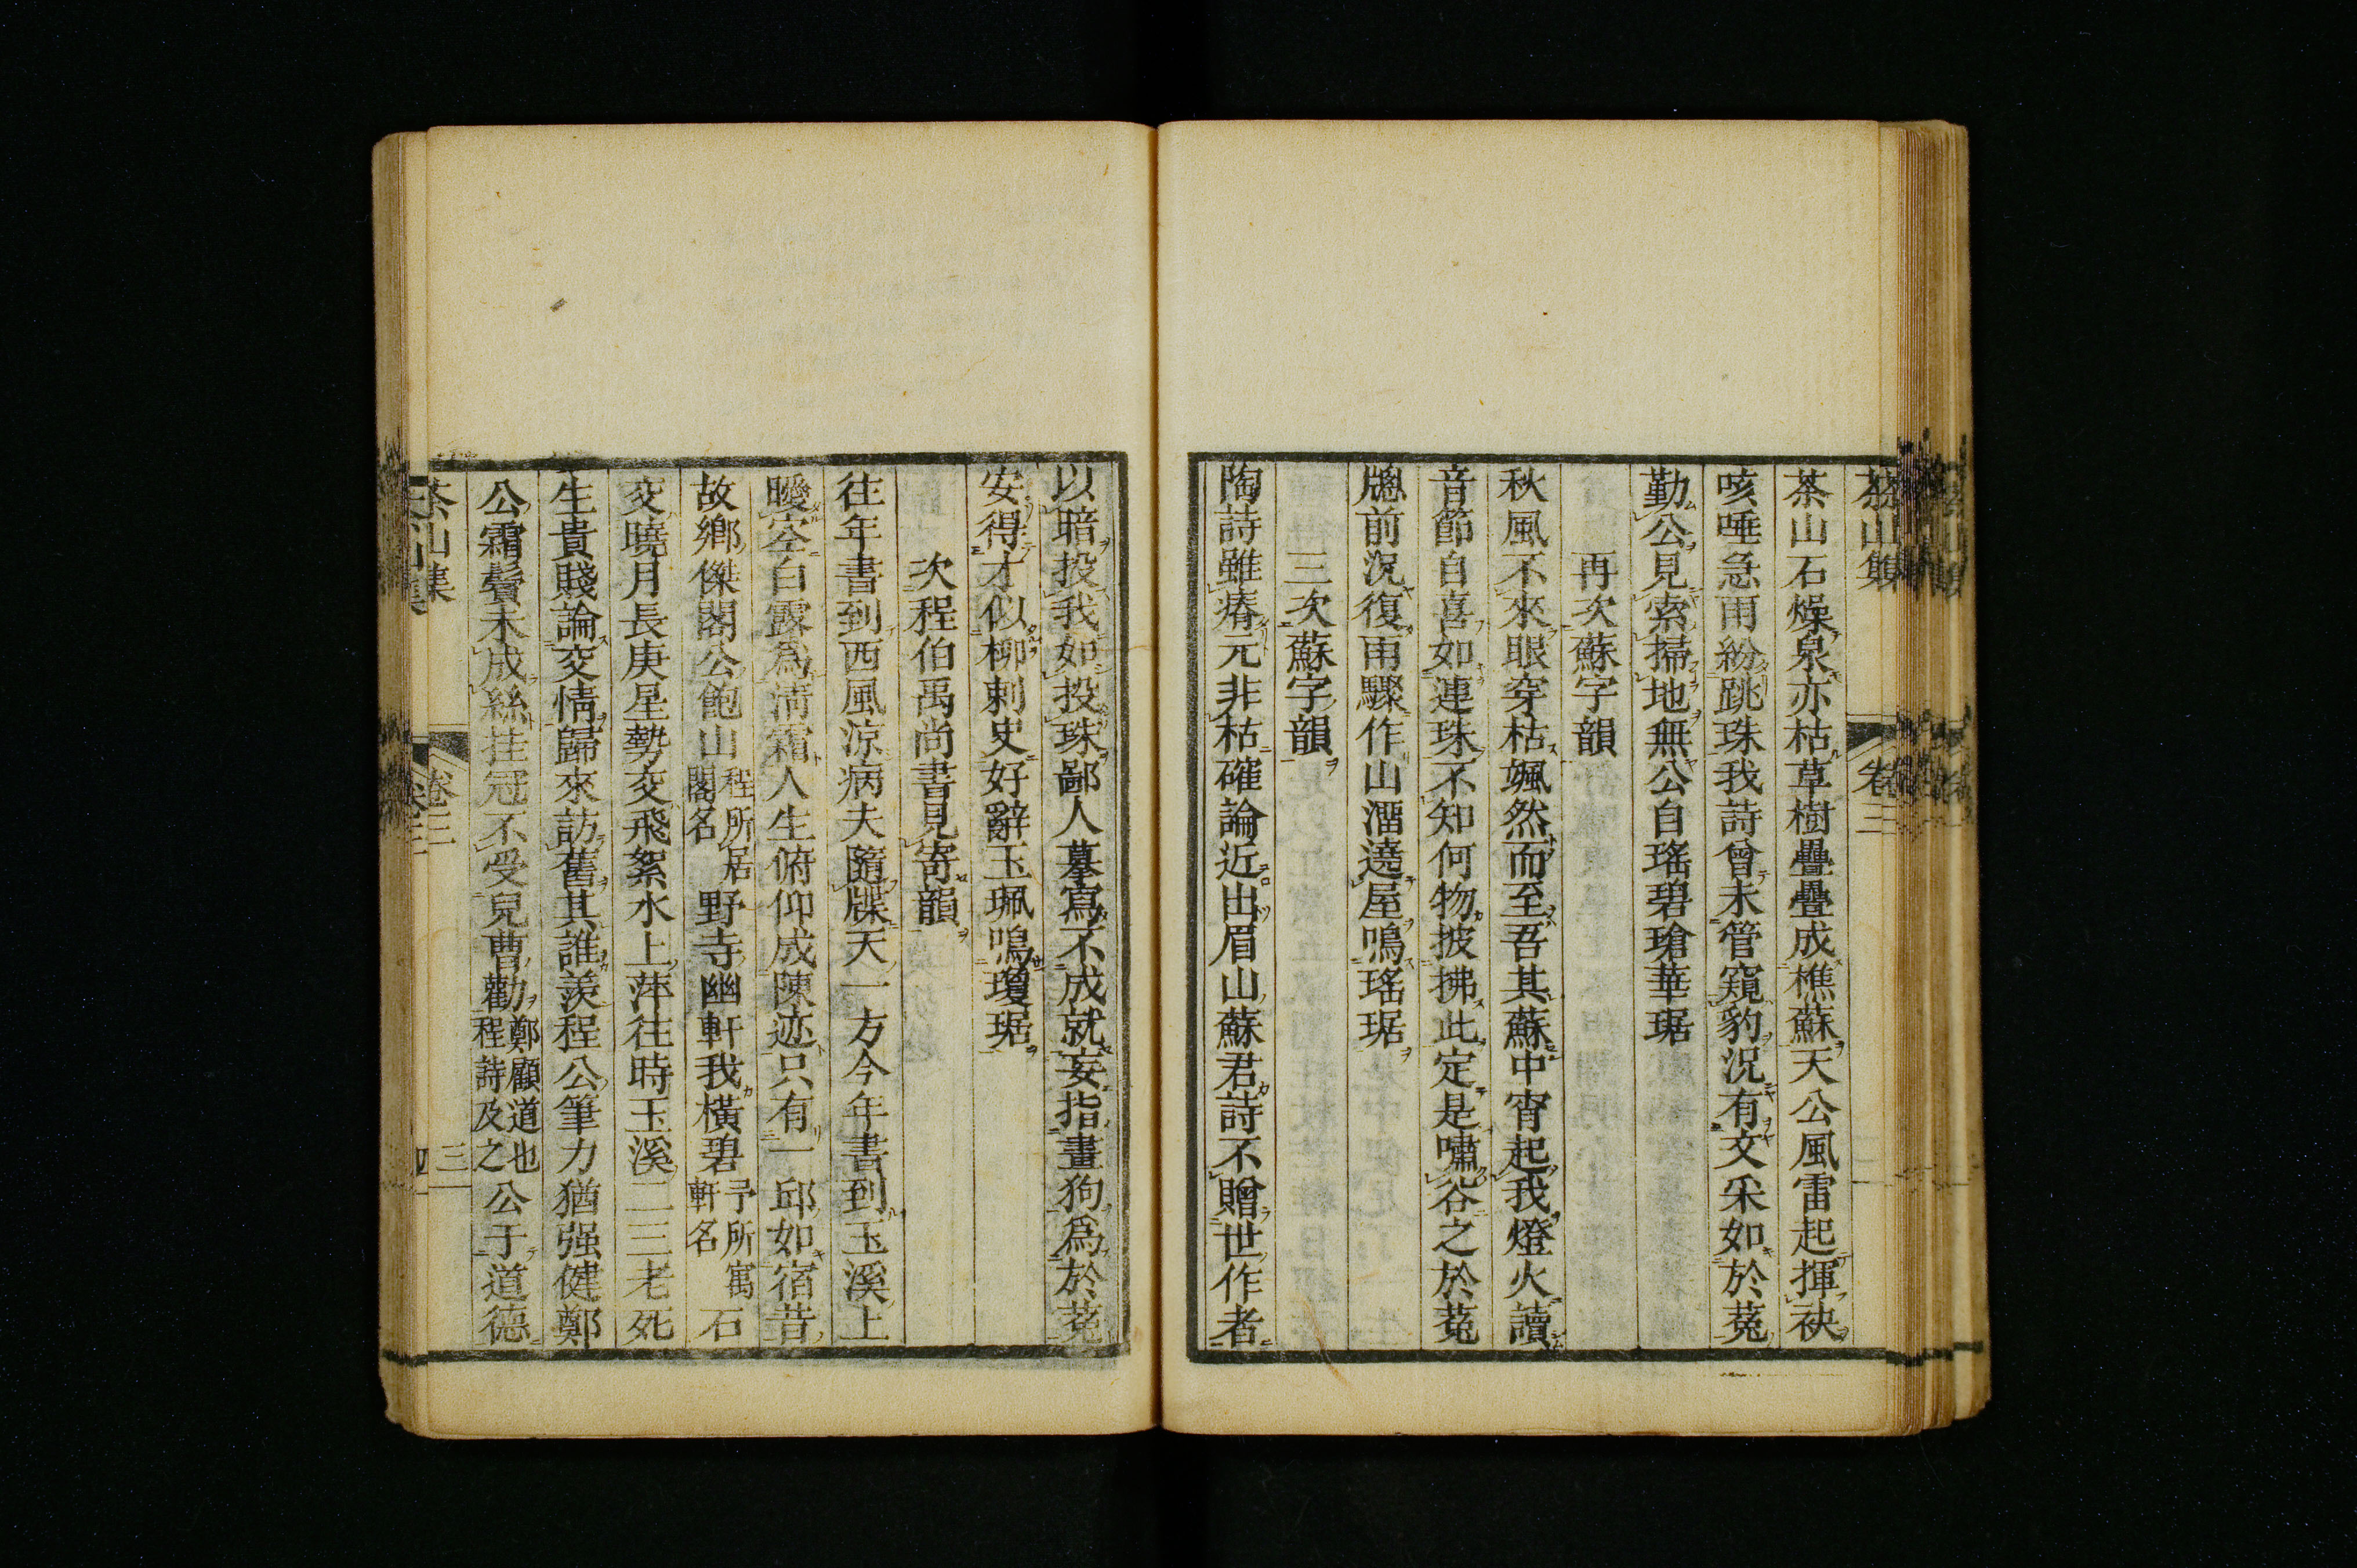 茶山集
卷三
茶山石燥泉亦枯草樹疊疊成樵蘇天公風雷起揮袂
咳唾急雨紛跳珠我詩曾未管窺豹況有文采如於菟
勤公見索掃地無公自瑤碧瑲華琚
再次蘇字韻
秋風不來眼穿枯颯然而至吾其蘇中宵起我燈火讀
音節自喜如連珠不知何物披拂此定是嘯谷之於菟
牕前況復雨驟作山溜遶屋鳴瑤琚
三次蘇字韻
陶詩雖瘠元非枯確論近出眉山蘇君詩不贈世作者
以暗投我如投珠鄙人摹寫不成就妄指畫狗爲於菟
安得才似柳刺史好辭玉珮鳴瓊琚
次程伯禹尚書見寄韻
往年書到西風涼病夫隨牒天一方今年書到玉溪上
曖空白露爲清霜人生俯仰成陳迹只有一邱如宿昔
故鄉傑閣公飽山程所居閣名野寺幽軒我橫碧予所寓軒名石
交曉月長庚星勢交飛絮水上萍往時玉溪二三老死
生貴賤論交情歸來訪舊其誰羨程公筆力猶强健鄭
公霜鬢未成絲挂冠不受兒曹勸鄭顧道也程詩及之公于道德
茶山集
卷三
三